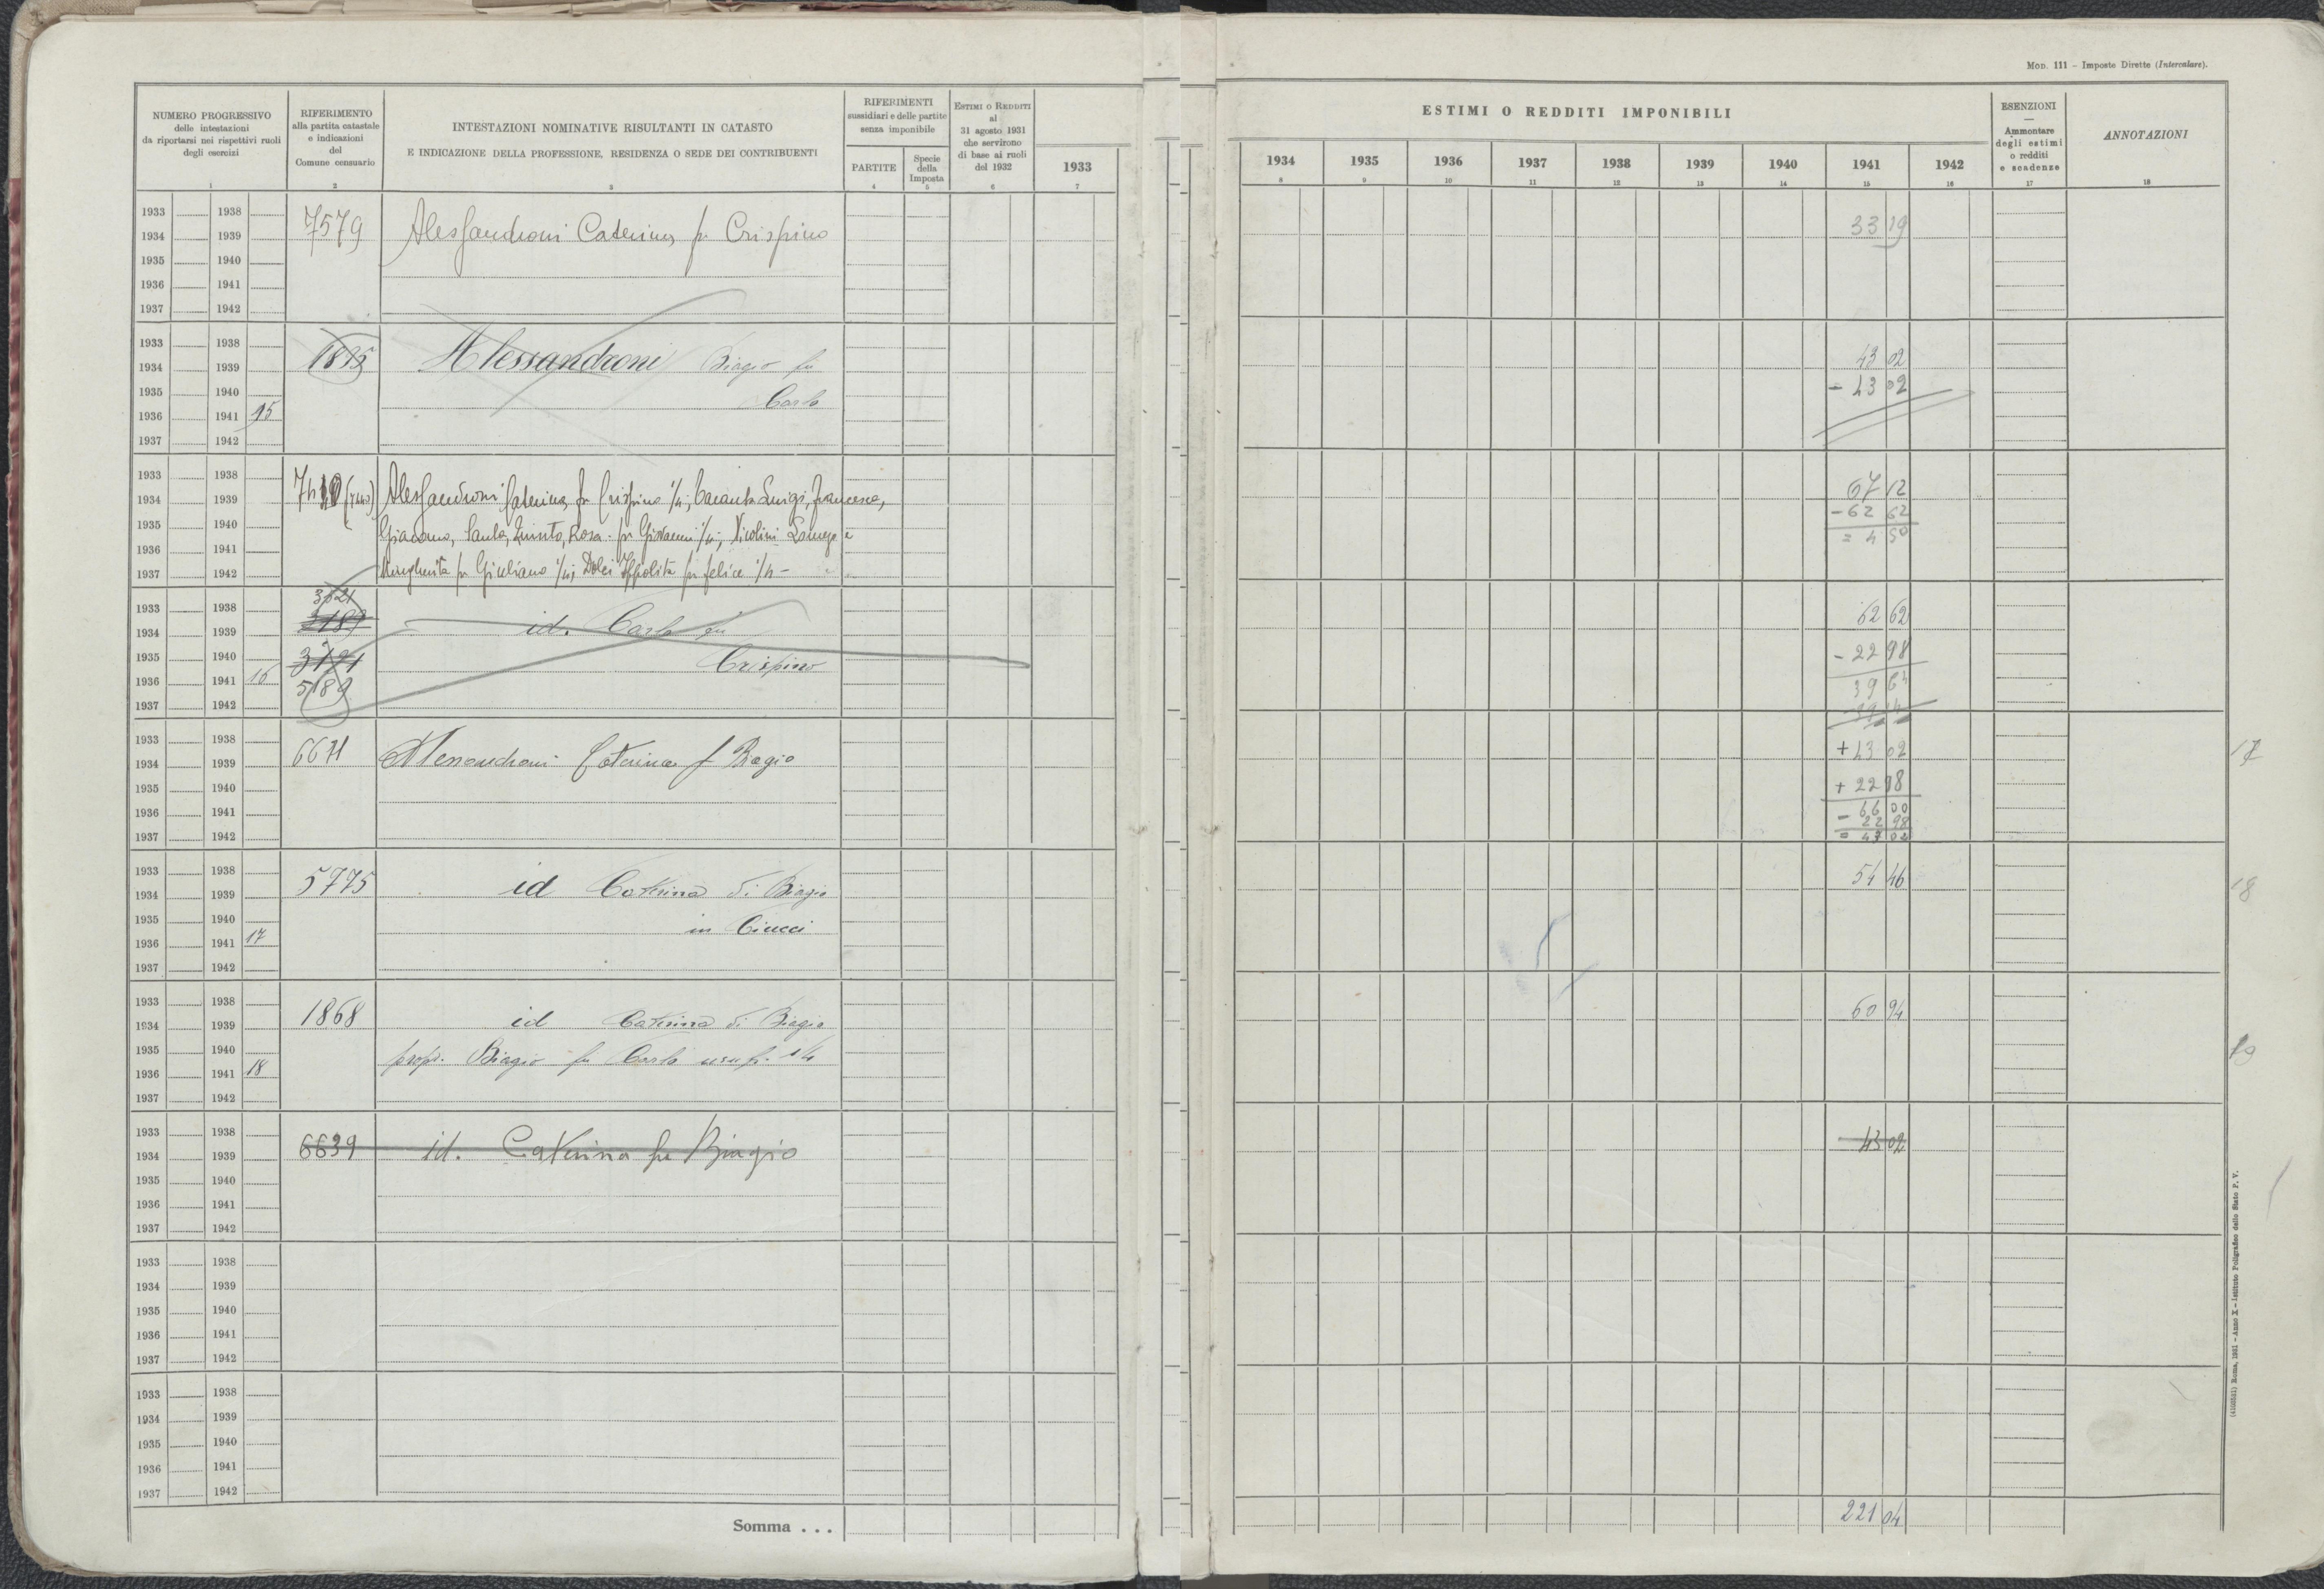 Mod. 111 – Imposte Dirette (Intercalare).
NUMERO PROGRESSIVO
delle intestazioni
da riportarsi nei rispettivi ruoli
degli esercizi
1
RIFERIMENTO
alla partita catastale
e indicazioni
del
Comune censuario
2
INTESTAZIONI NOMINATIVE RISULTANTI IN CATASTO
E INDICAZIONE DELLA PROFESSIONE, RESIDENZA O SEDE DEI CONTRIBUENTI
3
RIFERIMENTI
sussidiari e delle partite
senza imponibile
PARTITE
4
Specie
della
Imposta
5
Estimi o Redditi
al
31 agosto 1931
che servirono
di base ai ruoli
del 1932
6
1933
7
ESTIMI O REDDITI IMPONIBILI
1934 1935 1936 1937 1938 1939 1940 1941 1942
8 9 10 11 12 13 14 15 16
ESENZIONI
—
Ammontare
degli estimi
o redditi
e scadenze
17
ANNOTAZIONI
18
1933 1938 7579 Alessandroni Caterina fu Crispino 33 19
1934 1939
1935 1940
1936 1941
1937 1942
1933 1938 1875 Alessandroni Biagio fu 43 02
1934 1939 Carlo - 43 02
1935 1940
1936 1941 15
1937 1942
1933 1938 Alessandroni Caterina fu Crispino 1/4; Luigi, Francesco, 67 12
1934 1939 Giacomo, Santa, Quinto, Rosa fu Giovanni 1/4; Nicolini - 62 62
1935 1940 Margherita fu Giuliano 1/4; Dolci Ippolita fu Felice 1/4 - = 4 50
1936 1941
1937 1942
1933 1938 id. Carlo fu 62 62
1934 1939 Crispino - 22 98
1935 1940 39 64
1936 1941 16 5189
1937 1942
1933 1938 6671 Alessandroni Caterina f Biagio + 43 02 17
1934 1939 + 22 98
1935 1940 66 00
1936 1941 - 22 98
1937 1942 = 43 02
1933 1938 5775 id Caterina di Biagio 54 46 18
1934 1939 in Ciucci
1935 1940
1936 1941 17
1937 1942
1933 1938 1868 id Caterina di Biagio 60 94
1934 1939
1935 1940 propr. Biagio fu Carlo usufr. 1/4 19
1936 1941 18
1937 1942
1933 1938 6639 id. Caterina fu Biagio 43 02
1934 1939
1935 1940
1936 1941
1937 1942
1933 1938
1934 1939
1935 1940
1936 1941
1937 1942
1933 1938
1934 1939
1935 1940
1936 1941
1937 1942
Somma . . . 221 04
Roma, 1931 – Anno X – Istituto Poligrafico dello Stato P. V.